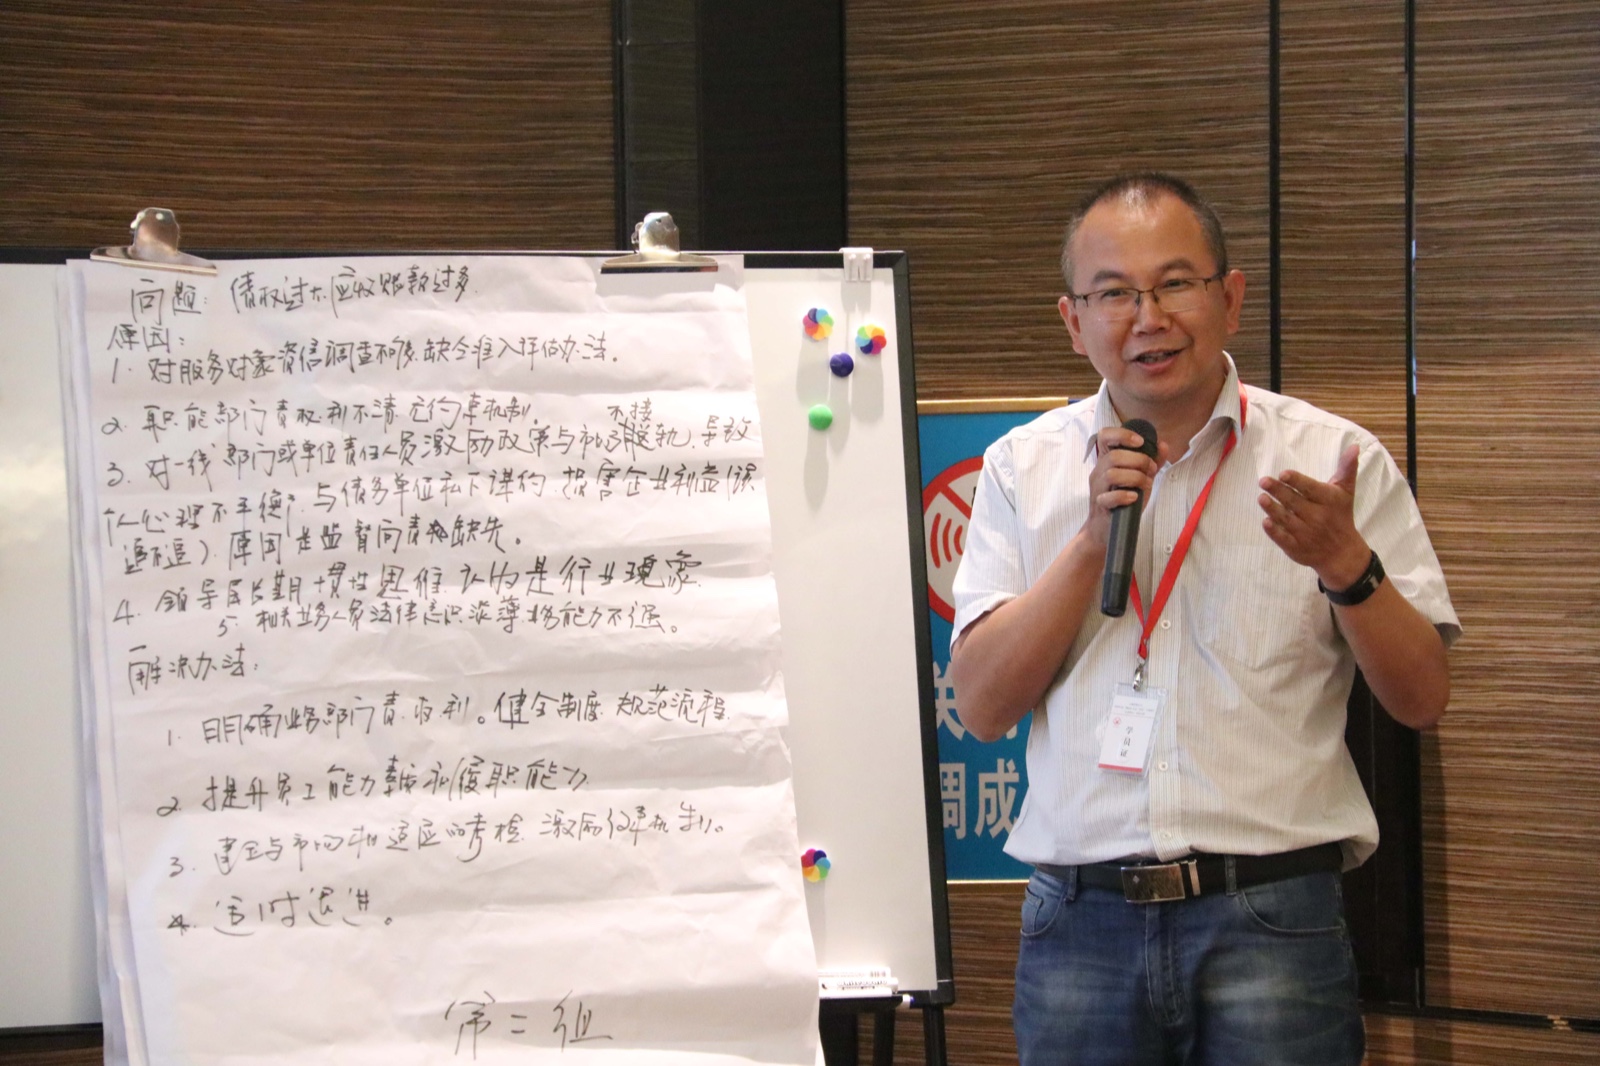 问题: 债权过大.应收账款过多.
原因:
1. 对服务对象资信调查不够.缺令准入评估办法。
2. 职能部门责权利不清.无约束机制.
不接
3. 对一线部门或单位责任人员激励政策与市场脱轨.导致
个人心理不平衡; 与债务单位私下谋约.损害企业利益(该
追不追).原因是监督问责缺失。
4. 领导层长期惯性思维.认为是行业现象.
5. 相关业务人员法律意识淡薄.业务能力不强。
解决办法:
1. 明确业务部门责.权.利。健全制度.规范流程.
2. 提升员工能力 履职能力.
3. 建立与市场相适应的考核.激励 机制。
4. 适时退进。
第二组
关
调成
学员证